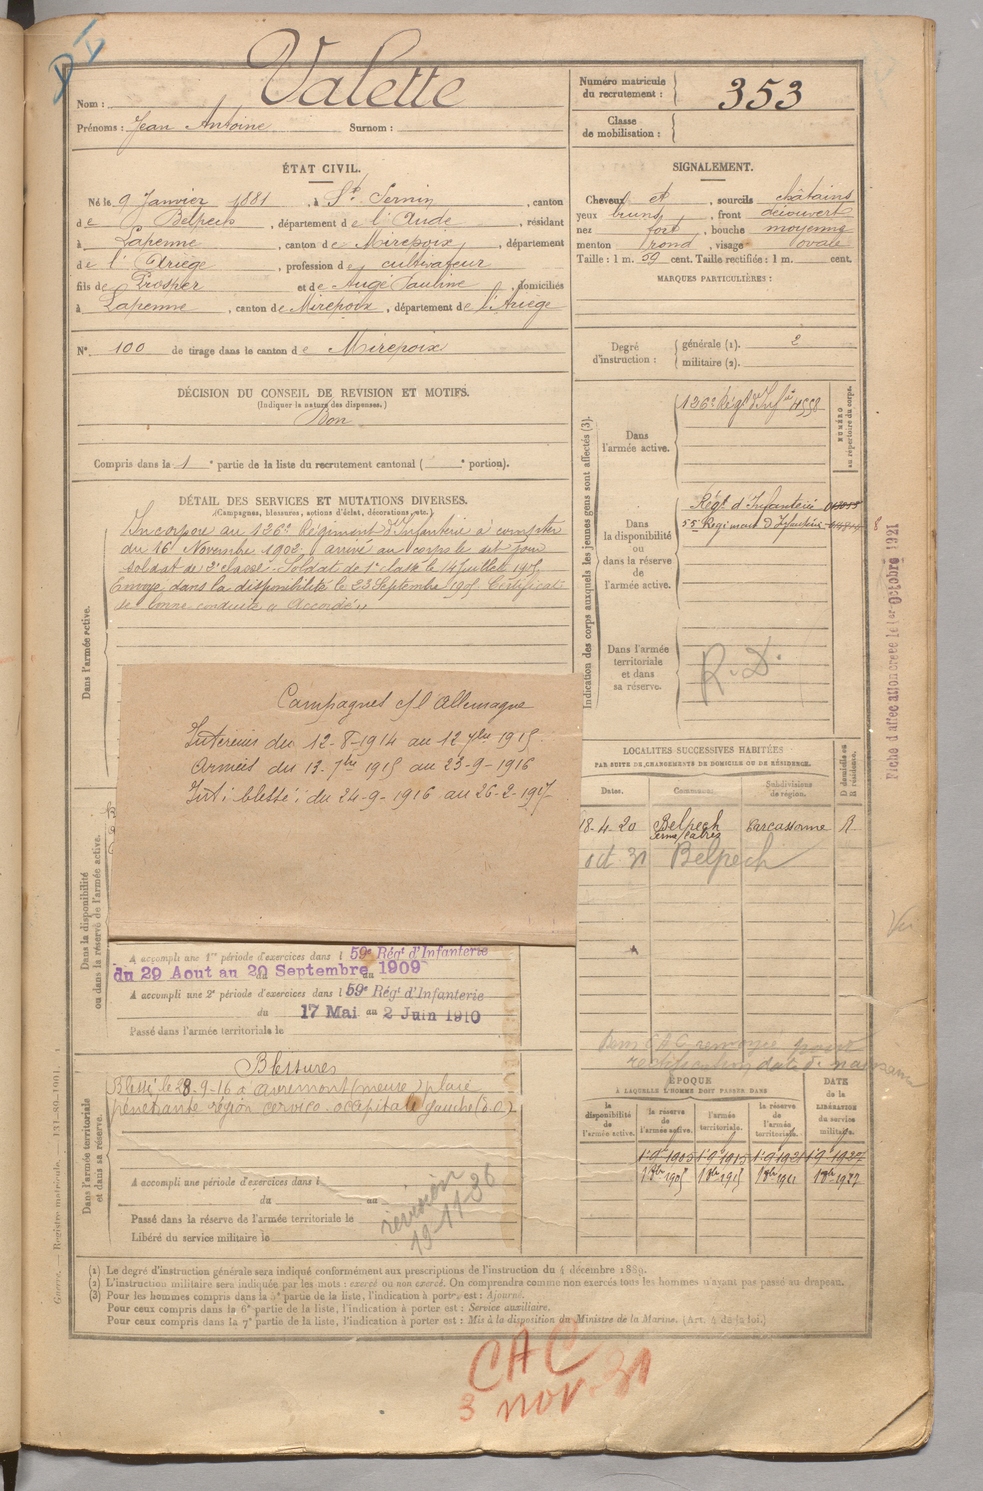 Nom : Valette
Prénoms : Jean Antoine Surnom :
Numéro matricule
du recrutement : 353
Classe
de mobilisation :
ÉTAT CIVIL.
Né le 9 Janvier 1881, à St Sernin, canton
de Belpech, département de l'Aude, résidant
à Lapenne, canton de Mirepoix, département
de l'Ariège, profession de cultivateur
fils de Prosper et de Auge Pauline, domiciliés
à Lapenne, canton de Mirepoix, département de l'Ariège
N° 100 de tirage dans le canton de Mirepoix
SIGNALEMENT.
Cheveux et, sourcils châtains
yeux bruns, front découvert
nez fort, bouche moyenne
menton rond, visage ovale
Taille : 1 m. 59 cent. Taille rectifiée : 1 m. cent.
MARQUES PARTICULIÈRES :
Degré
d'instruction :
générale (1). 2
militaire (2).
DÉCISION DU CONSEIL DE REVISION ET MOTIFS.
(Indiquer la nature des dispenses.)
Bon
Compris dans la 1e partie de la liste du recrutement cantonal ( e portion).
DÉTAIL DES SERVICES ET MUTATIONS DIVERSES.
(Campagnes, blessures, actions d'éclat, décorations, etc.)
Dans l'armée active.
Incorporé au 126e Régiment d'Infanterie à compter
du 16 Novembre 1902, arrivé au corps le dit jour
soldat de 2e classe. Soldat de 1e classe le 14 Juillet 1905
Envoyé dans la disponibilité le 23 Septembre 1905 Certificat
de bonne conduite "Accordé"
Campagnes c/ l'Allemagne
Intérieur du 12-8-1914 au 12 7bre 1915.
Armées du 13-7bre 1915 au 23-9-1916
Int: blessé: du 24-9-1916 au 26-2-1917
Dans la disponibilité
ou dans la réserve de l'armée active.
A accompli une 1re période d'exercices dans l 59e Régt d'Infanterie
du 29 Aout au 20 Septembre 1909
A accompli une 2e période d'exercices dans l 59e Régt d'Infanterie
du 17 Mai au 2 Juin 1910
Passé dans l'armée territoriale le
Dans l'armée territoriale
et dans sa réserve.
Blessures
Blessé le 28-9-16 à (meuse) plaie
pénétrante région cervico-occipitale gauche
A accompli une période d'exercices dans l
du au
Passé dans la réserve de l'armée territoriale le
Libéré du service militaire le
revision
19-11-36
Indication des corps auxquels les jeunes gens sont affectés (3).
NUMÉRO
au répertoire du corps.
Dans
l'armée active.
126e Régt d'Infie 4558
Dans
la disponibilité
ou
dans la réserve
de
l'armée active.
Régt d'Infanterie
Régiment d'Infanterie
Dans l'armée
territoriale
et dans
sa réserve.
R.D.
Fiche d'affectation créée le 1er Octobre 1921
LOCALITÉS SUCCESSIVES HABITÉES
PAR SUITE DE CHANGEMENTS DE DOMICILE OU DE RÉSIDENCE.
Dates. Communes. Subdivisions
de région. D domicile ou
R résidence.
18-4-20 Belpech Carcassonne R
oct 31 Belpech
ÉPOQUE
À LAQUELLE L'HOMME DOIT PASSER DANS
DATE
de la
LIBÉRATION
du service
militaire.
la
disponibilité
de
l'armée active.
la réserve
de
l'armée active.
l'armée
territoriale.
la réserve
de
l'armée
territoriale.
(1) Le degré d'instruction générale sera indiqué conformément aux prescriptions de l'instruction du 4 décembre 1889.
(2) L'instruction militaire sera indiquée par les mots : exercé ou non exercé. On comprendra comme non exercés tous les hommes n'ayant pas passé au drapeau.
(3) Pour les hommes compris dans la 5e partie de la liste, l'indication à porter est : Ajourné.
Pour ceux compris dans la 6e partie de la liste, l'indication à porter est : Service auxiliaire.
Pour ceux compris dans la 7e partie de la liste, l'indication à porter est : Mis à la disposition du Ministre de la Marine. (Art. 4 de la loi.)
CAC
3 nov. 31